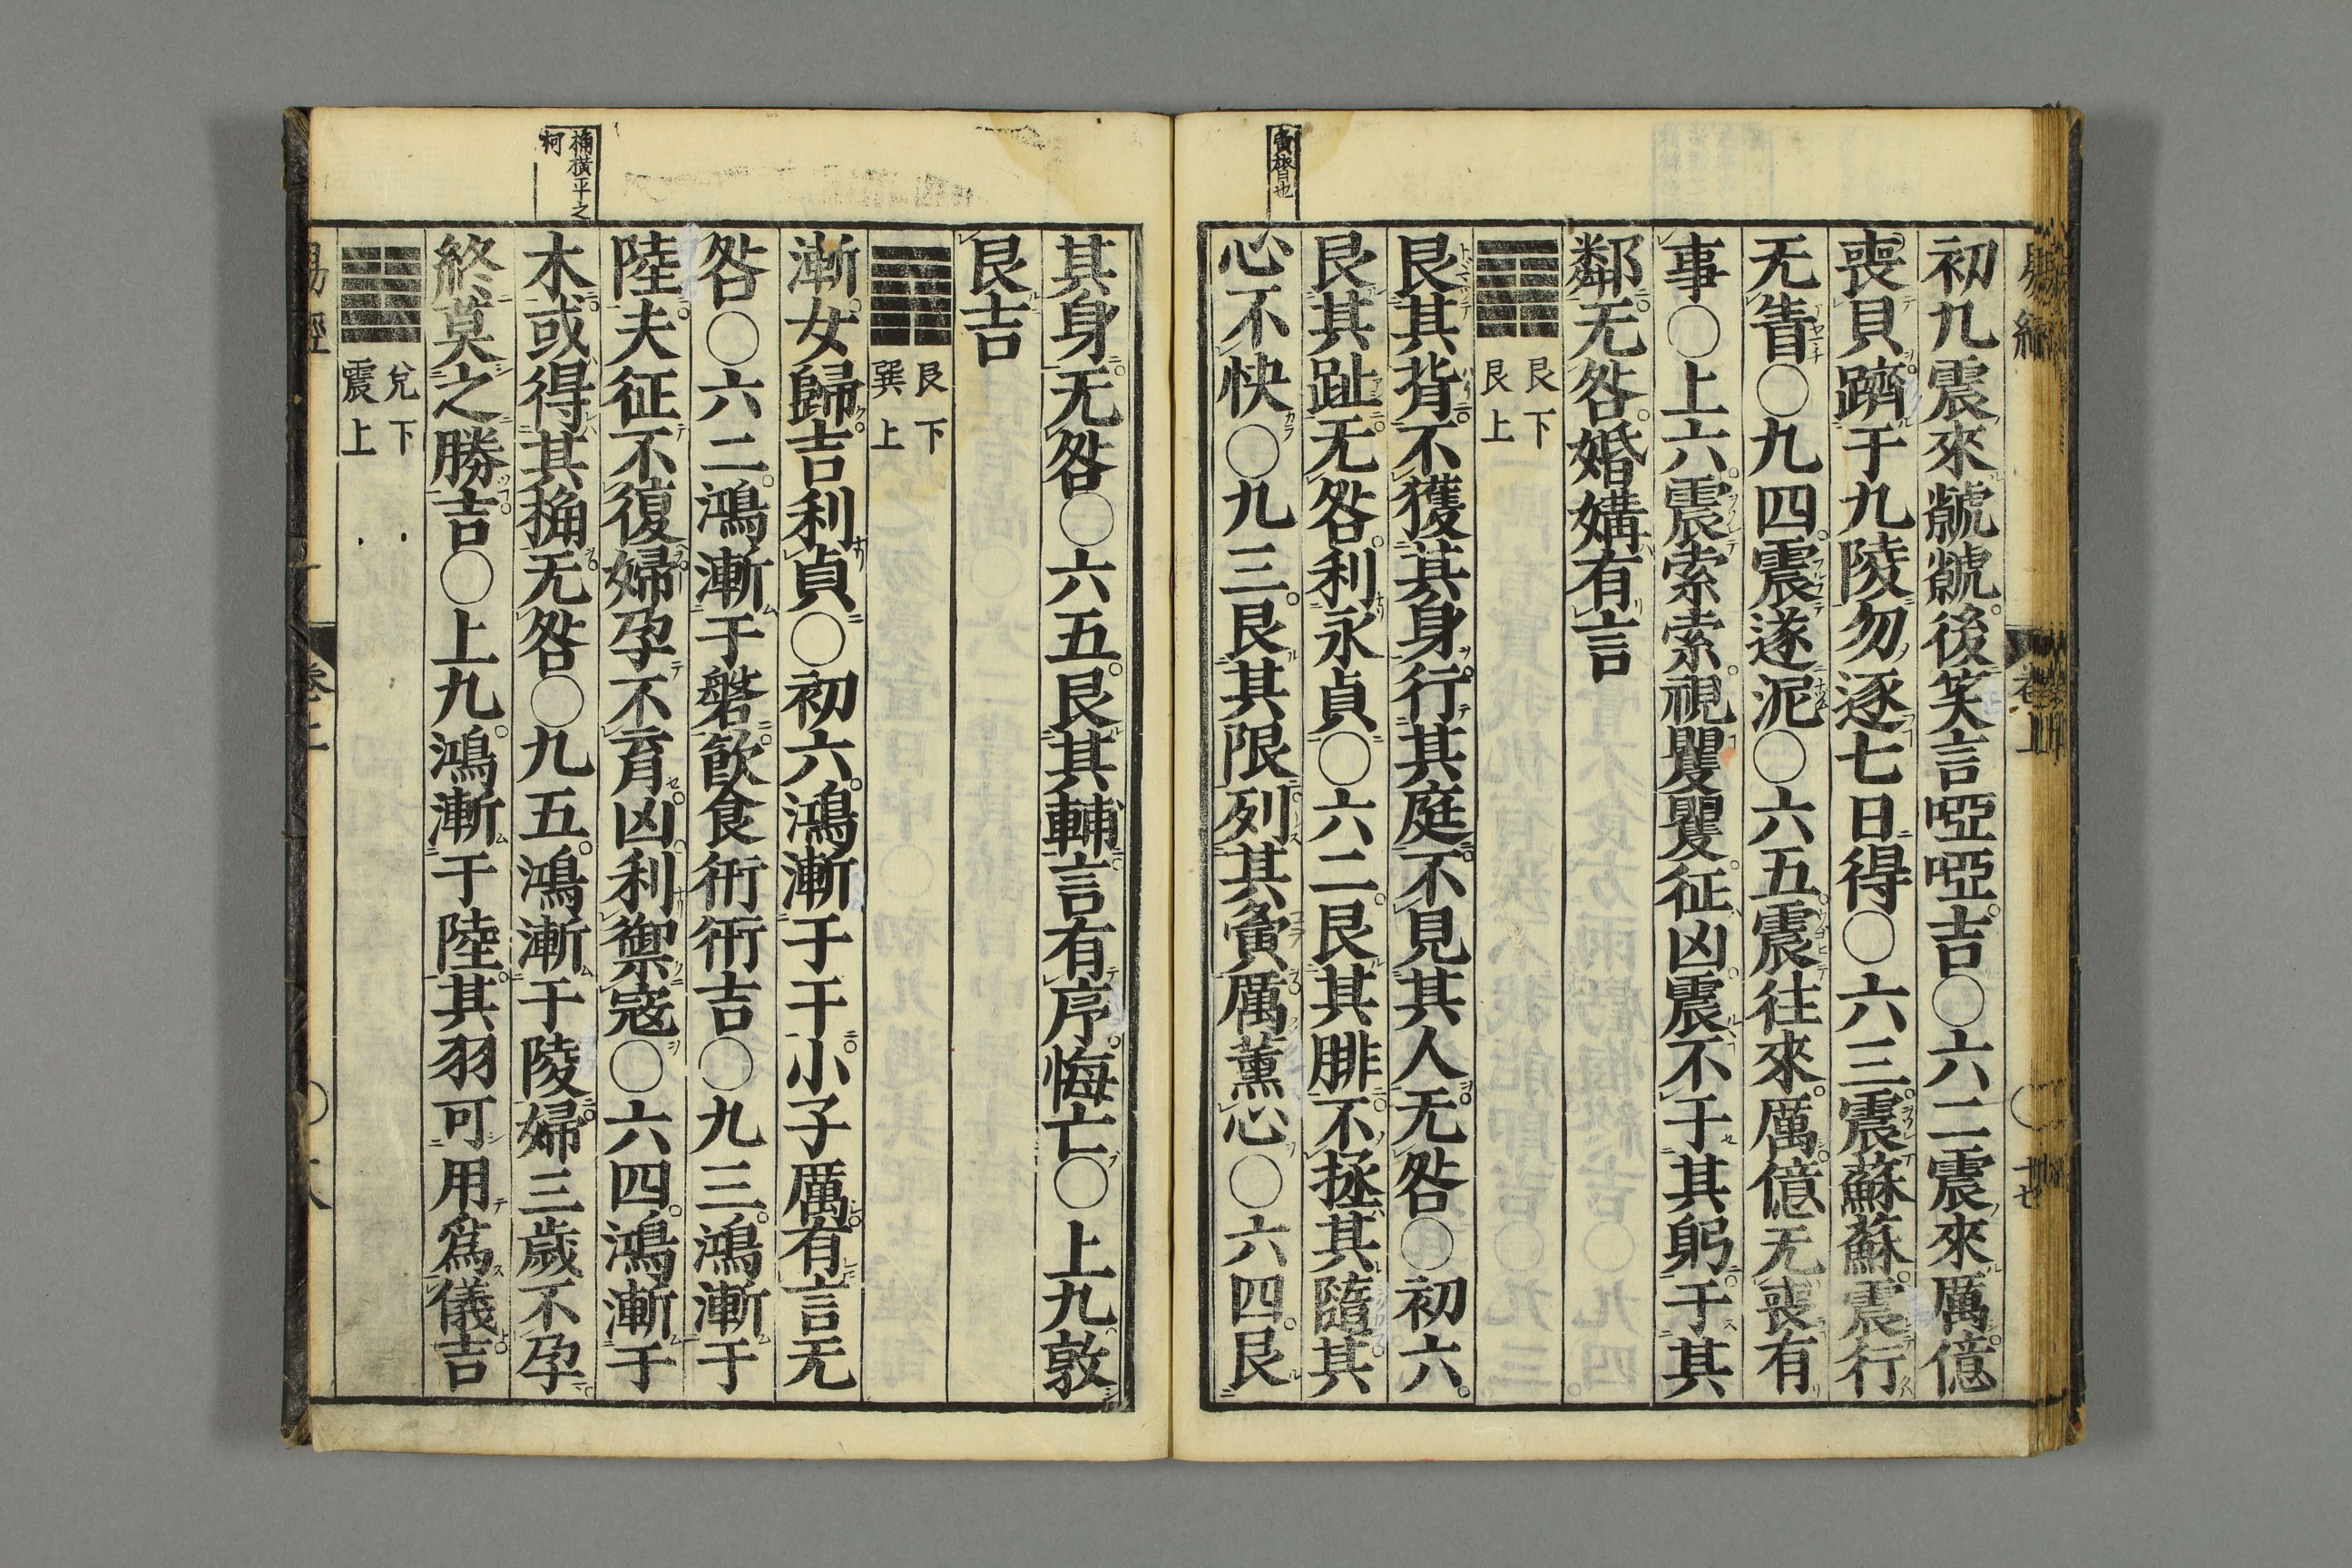 初九震來虩虩後笑言啞啞吉○六二震來厲億
喪貝躋于九陵勿逐七日得○六三震蘇蘇震行
无眚○九四震遂泥○六五震往來厲億无喪有
事○上六震索索視矍矍征凶震不于其躬于其
鄰无咎婚媾有言
艮下
艮上
艮其背不獲其身行其庭不見其人无咎○初六
艮其趾无咎利永貞○六二艮其腓不拯其隨其
心不快○九三艮其限列其夤厲薰心○六四艮
夤膂也
其身无咎○六五艮其輔言有序悔亡○上九敦
艮吉
艮下
巽上
漸女歸吉利貞○初六鴻漸于干小子厲有言无
咎○六二鴻漸于磐飲食衎衎吉○九三鴻漸于
陸夫征不復婦孕不育凶利禦寇○六四鴻漸于
木或得其桷无咎○九五鴻漸于陵婦三歲不孕
終莫之勝吉○上九鴻漸于陸其羽可用爲儀吉
兌下
震上
桷橫平之
柯